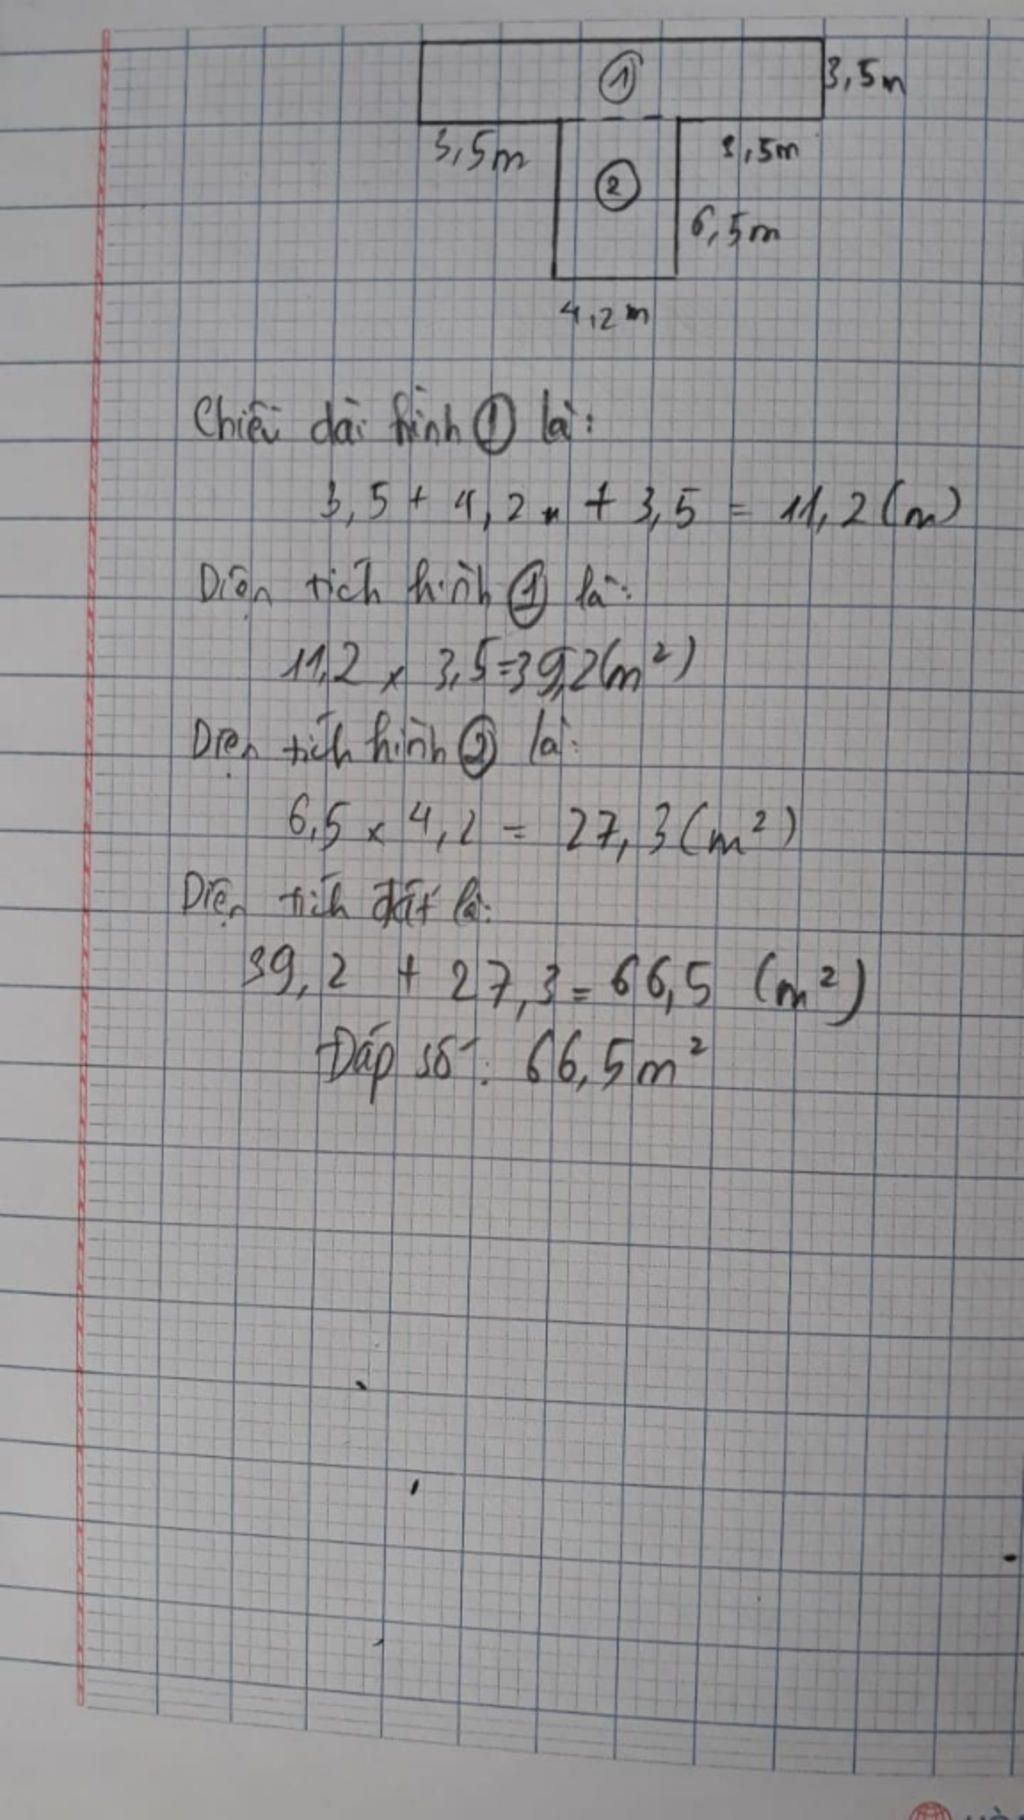 ①
3,5m
3,5m
3,5m
②
6,5m
4,2m
Chiều dài hình ① là:
3,5 + 4,2 + 3,5 = 11,2 (m)
Diện tích hình ① là:
11,2 x 3,5=39,2(m²)
Diện tích hình ② là:
6,5 x 4,2 = 27,3 (m²)
Diện tích đất là:
39,2 + 27,3 = 66,5 (m²)
Đáp số: 66,5m²